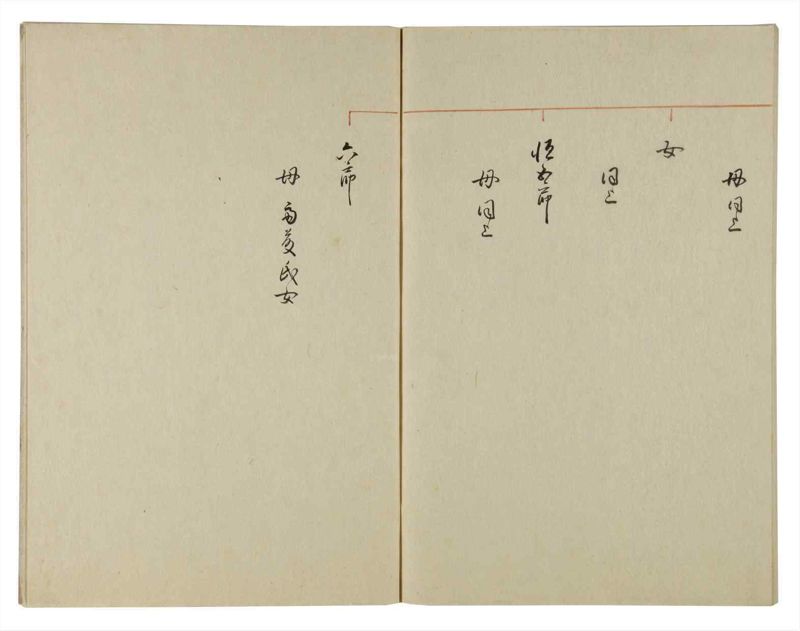 母同上
女
同上
恒五郎
母同上
六郎
母 斎藤氏女